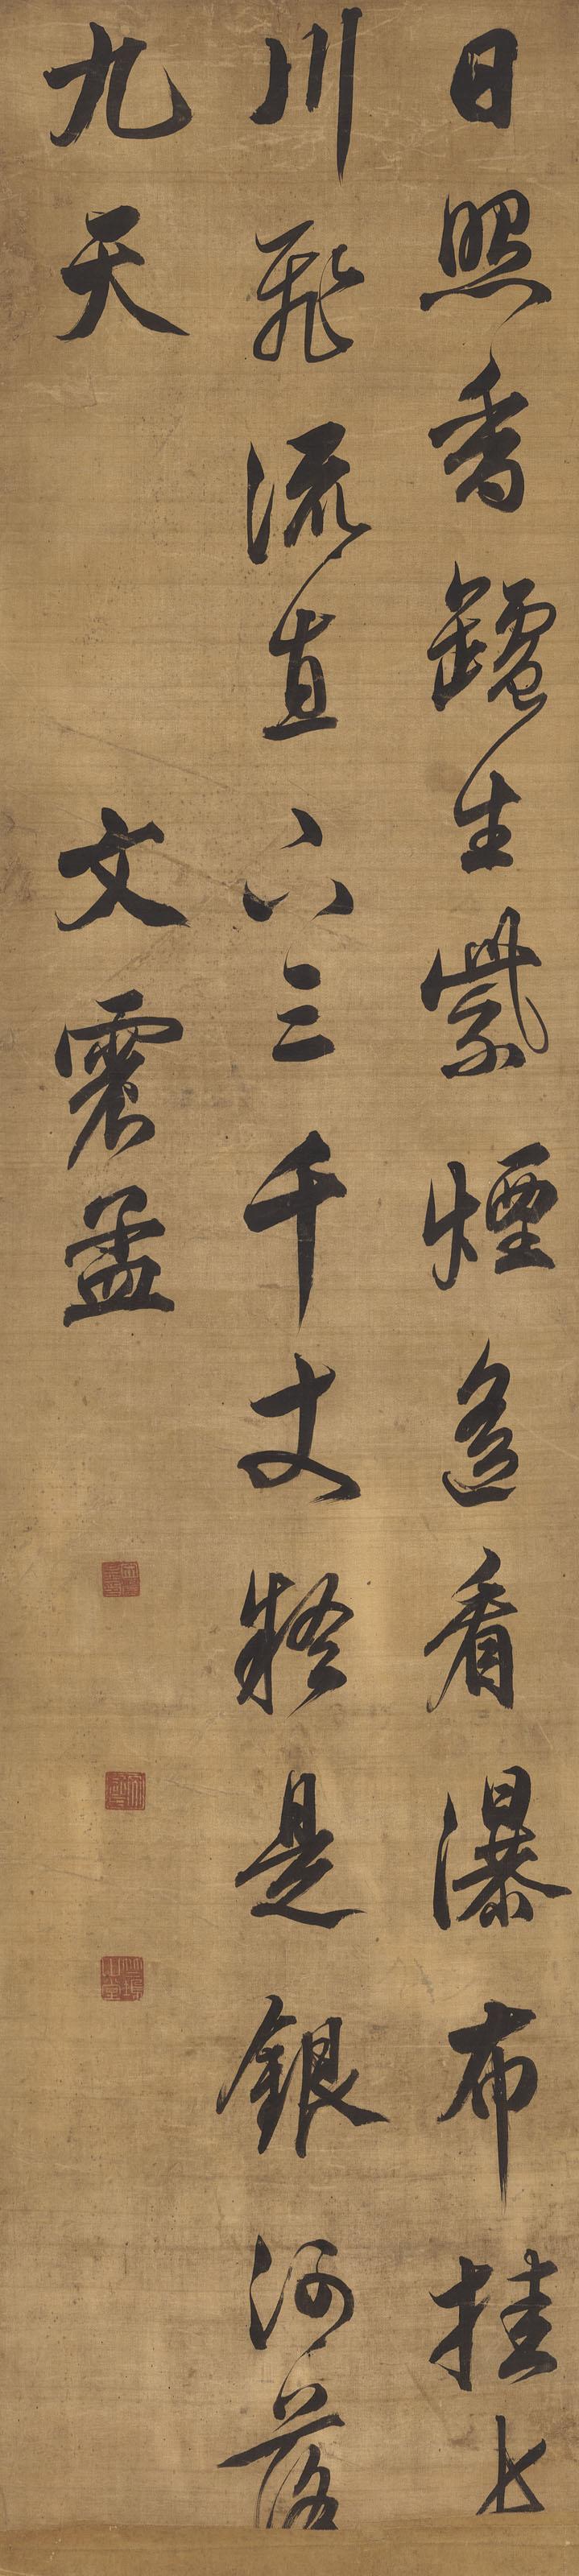 日照香罏生紫煙遙看瀑布挂長
川飛流直下三千丈疑是銀河落
九天 文震孟